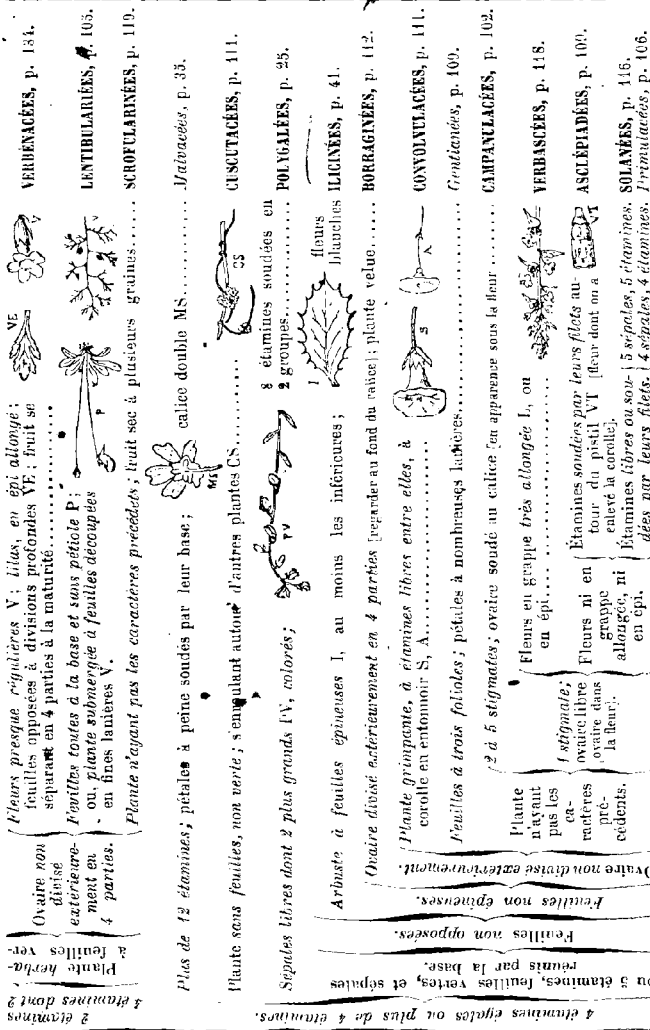 2 étamines
4 étamines dont 2
Plante herba-
à feuilles ver-
Ovaire non
divisé
extérieure-
ment en
4 parties.
Fleurs presque régulières V; lilas, en épi allongé;
feuilles opposées à divisions profondes VE; fruit se
séparant en 4 parties à la maturité
VE
V
VERBENACÉES, p. 134.
Feuilles toutes à la base et sans pétiole P;
ou, plante submergée à feuilles découpées
en fines lanières V.
P
LENTIBULARIÉES, p. 105.
Plante n'ayant pas les caractères précédets; fruit sec à plusieurs graines
SCROFULARINÉES, p. 119.
4 étamines égales ou plus de 4 étamines.
Plus de 12 étamines; pétales à peine soudés par leur base;
MS
calice double MS
Malvacées, p. 35.
Plante sans feuilles, non verte; s'enroulant autour d'autres plantes CS
CS
CUSCUTACÉES, p. 111.
Sépales libres dont 2 plus grands PV, colorés;
PV
8 étamines soudées en
2 groupes
POLYGALÉES, p. 25.
ou 5 étamines, feuilles vertes, et sépales
réunis par la base.
Feuilles non opposées.
Arbuste à feuilles épineuses I, au moins les inférieures;
I
fleurs
blanches
ILICINÉES, p. 41.
Feuilles non épineuses.
Ovaire divisé extérieurement en 4 parties [regarder au fond du calice]; plante velue
BORRAGINÉES, p. 112.
Ovaire non divisé extérieurement.
Plante grimpante, à étamines libres entre elles, à
corolle en entonnoir S, A
S
A
CONVOLVULACÉES, p. 111.
Feuilles à trois folioles; pétales à nombreuses lanières
Gentianées, p. 109.
Plante
n'ayant
pas les
ca-
ractères
pré-
cédents.
2 à 5 stigmates; ovaire soudé au calice [en apparence sous la fleur
CAMPANULACÉES, p. 102.
1 stigmate;
ovaire libre
[ovaire dans
la fleur].
Fleurs en grappe très allongée L, ou
en épi
VERBASCÉES, p. 118.
Fleurs ni en
grappe
allongée, ni
en épi.
Étamines soudées par leurs filets au-
tour du pistil VT [fleur dont on a
enlevé la corolle].
VT
ASCLÉPIADÉES, p. 109.
Étamines libres ou sou-
dées par leurs filets.
5 sépales, 5 étamines.
SOLANÉES, p. 116.
4 sépales, 4 étamines.
Primulacées, p. 106.